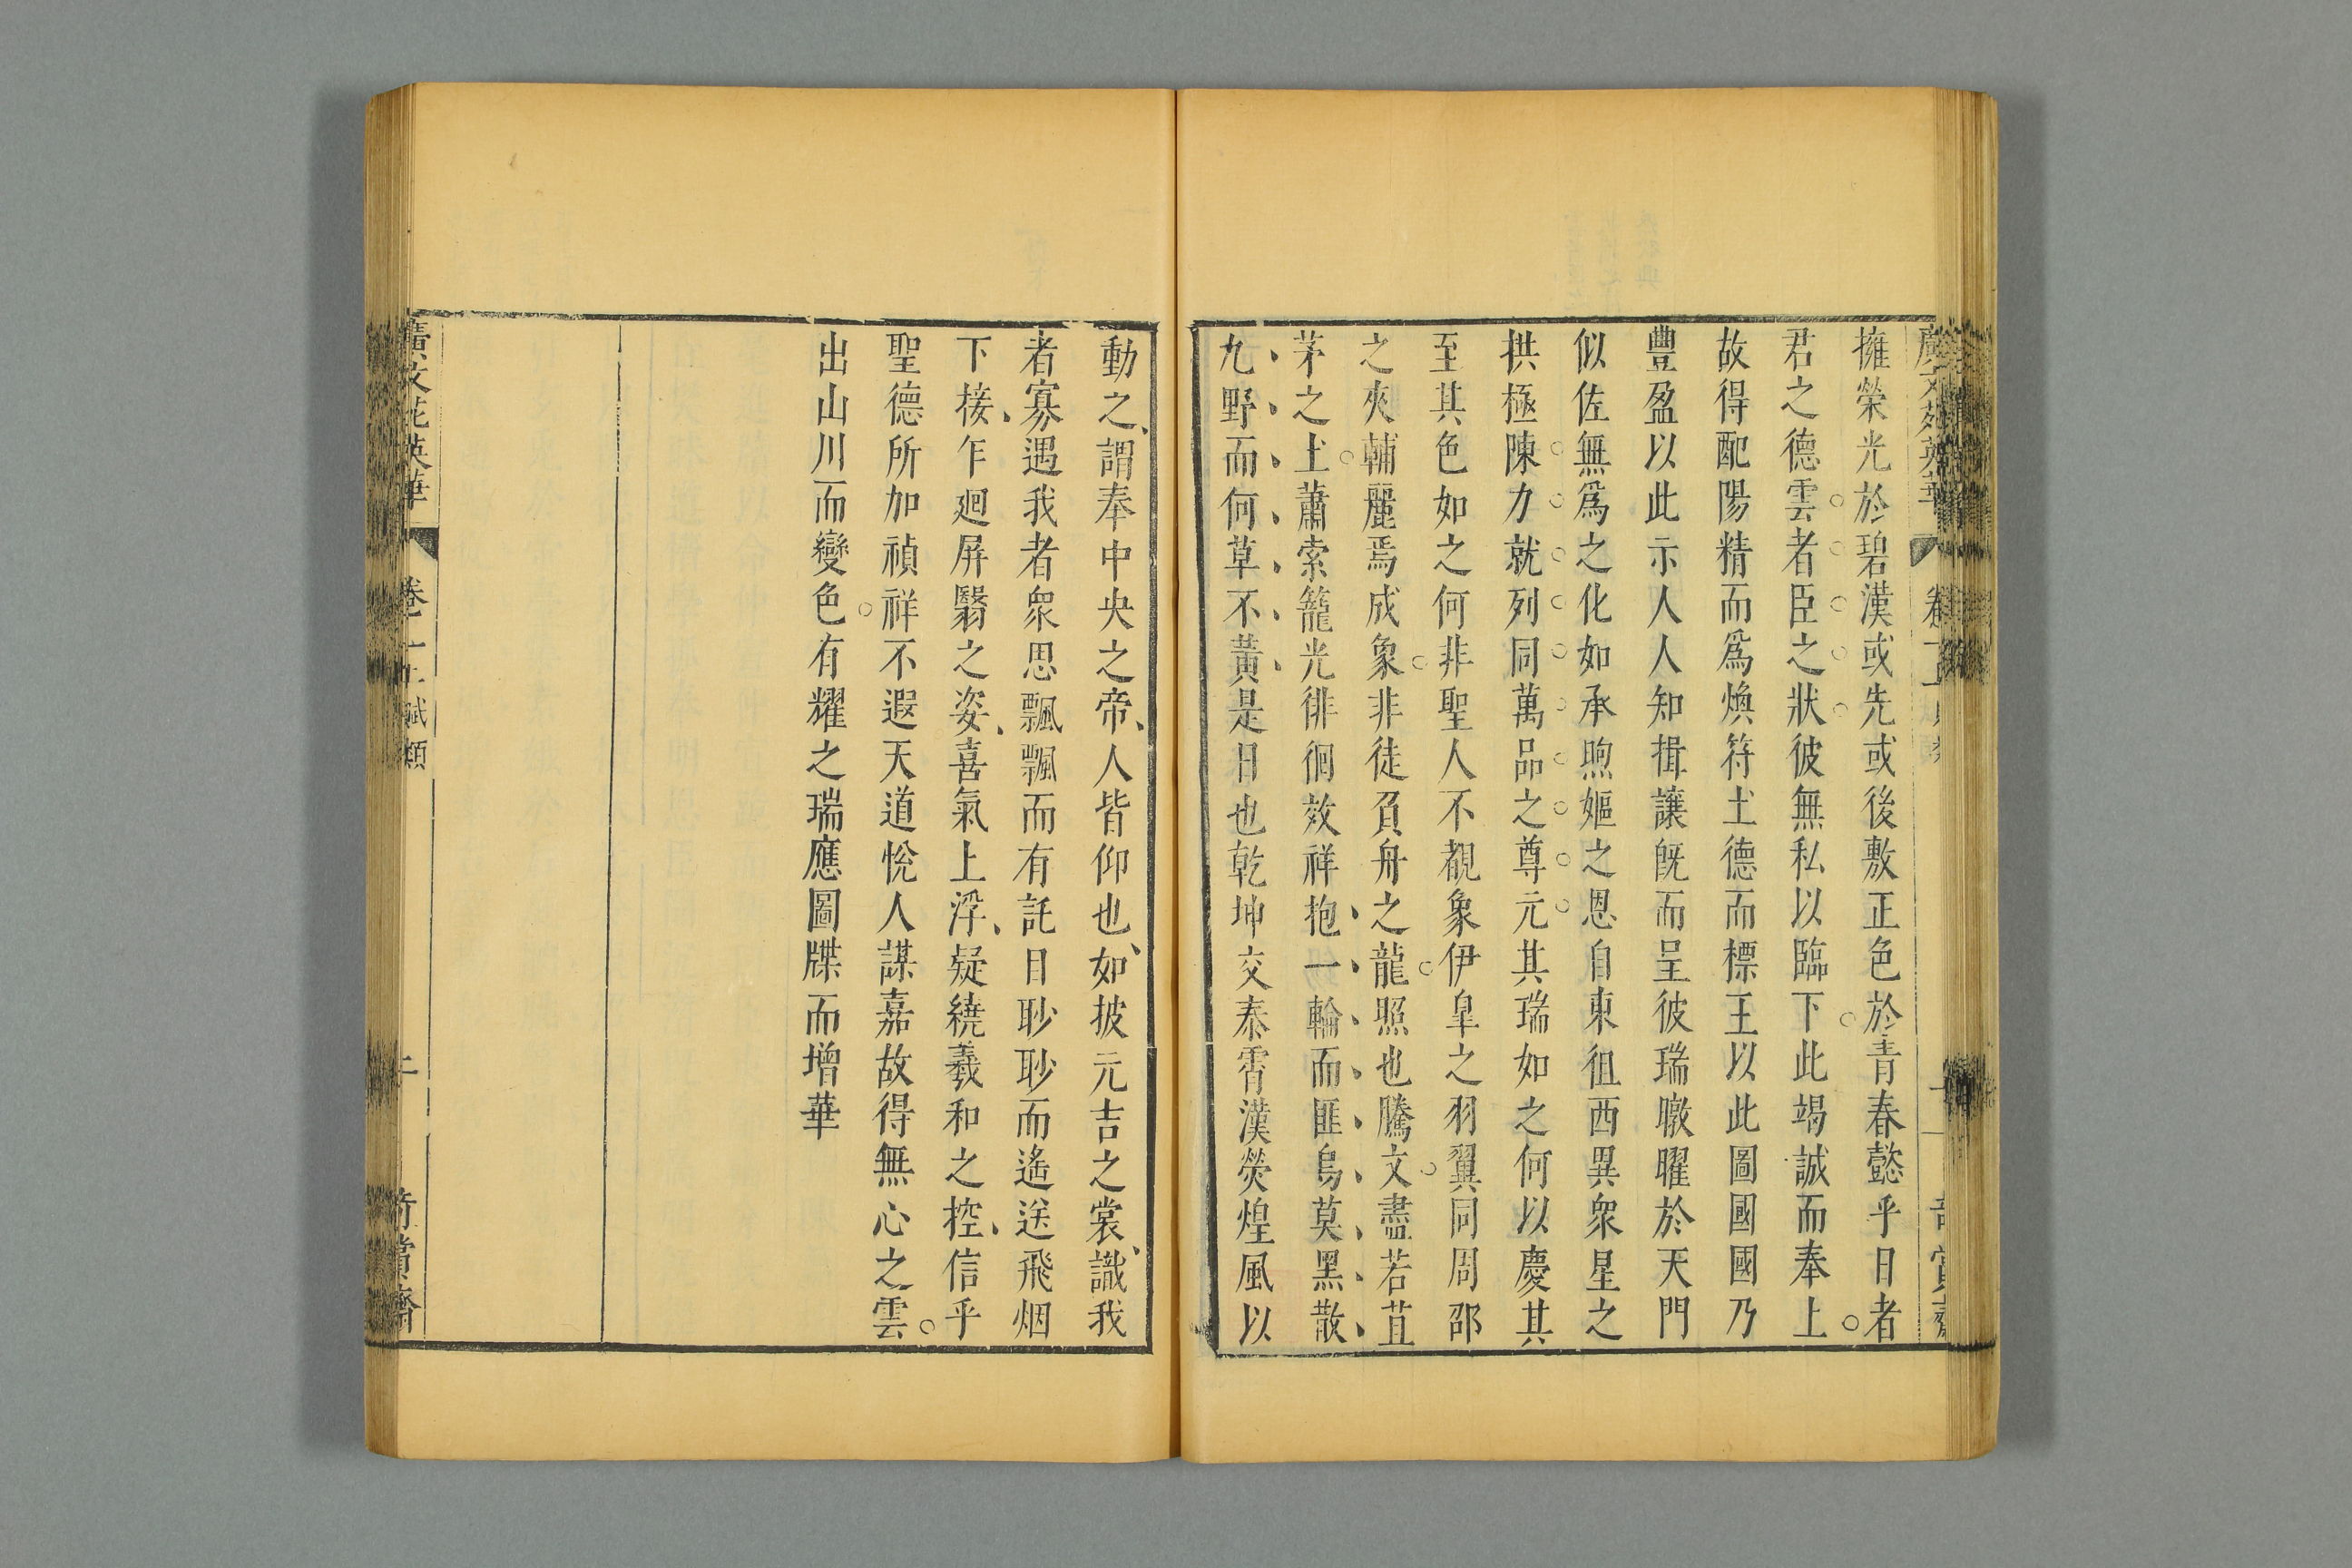 擁榮光於碧漢或先或後敷正色於青春懿乎日者
君之德雲者臣之狀彼無私以臨下此竭誠而奉上
故得配陽精而爲煥符土德而標王以此圖國國乃
豐盈以此示人人知揖讓旣而呈彼瑞暾曜於天門
似佐無爲之化如承煦嫗之恩自東徂西異衆星之
拱極陳力就列同萬品之尊元其瑞如之何以慶其
至其色如之何非聖人不覩象伊臯之羽翼同周邵
之夾輔麗焉成象非徒負舟之龍照也騰文盡若苴
茅之土蕭索籠光徘徊效祥抱一輪而匪烏莫黑散
九野而何草不黃是日也乾坤交泰霄漢熒煌風以
動之謂奉中央之帝人皆仰也如披元吉之裳識我
者寡遇我者衆思飄飄而有託日眇眇而遙送飛烟
下接乍廻屏翳之姿喜氣上浮疑繞羲和之控信乎
聖德所加禎祥不遐天道悅人謀嘉故得無心之雲
出山川而變色有耀之瑞應圖牒而增華
廣文苑英華 卷二上 賦類